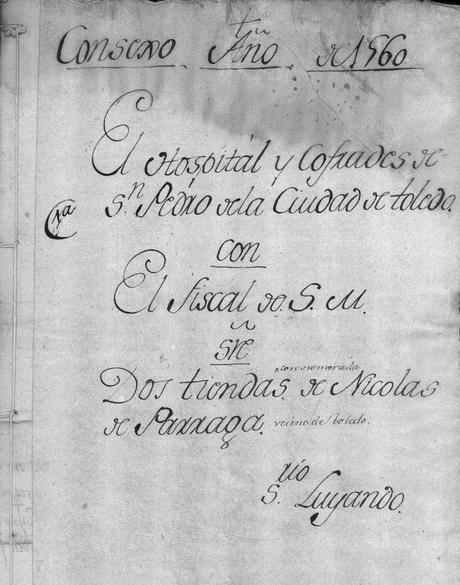 Consexo Año de 1560
El Hospital y Cofrades de
1a Sn Pedro de la Ciudad de toledo.
con
El fiscal de S. M.
sre
con su morada
Dos tiendas de Nicolas
de Parraga. vecino de toledo.
S.rio Luyando.